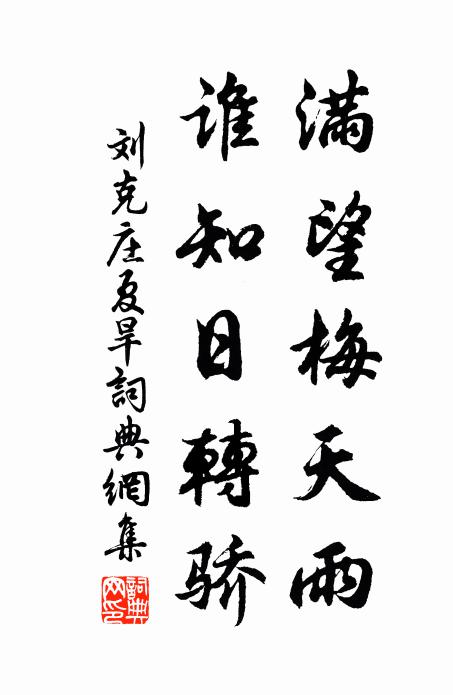 滿望梅天雨
誰知日轉骄
刘克庄夏旱詞典網集
詞典网印